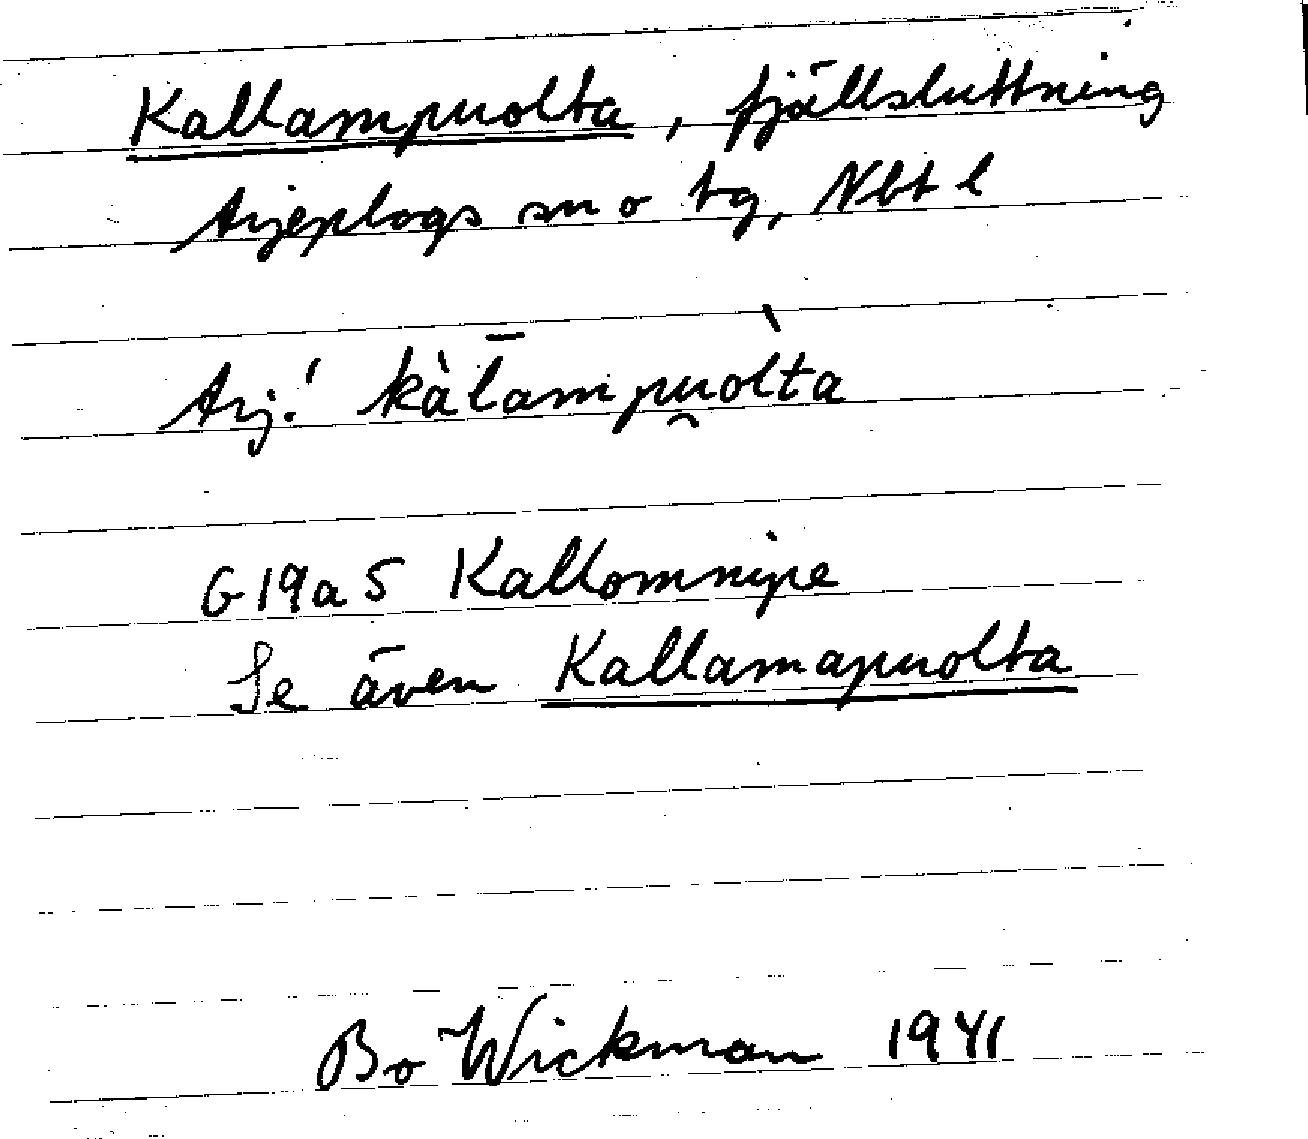 Kallampuolta, fjällsluttning
Arjeplogs sn o tg, Nbt l
Arj! kàl̄ampu̯òlta
G19a5 Kallomnipe
Se även Kallamapuolta
Bo Wickman 1941